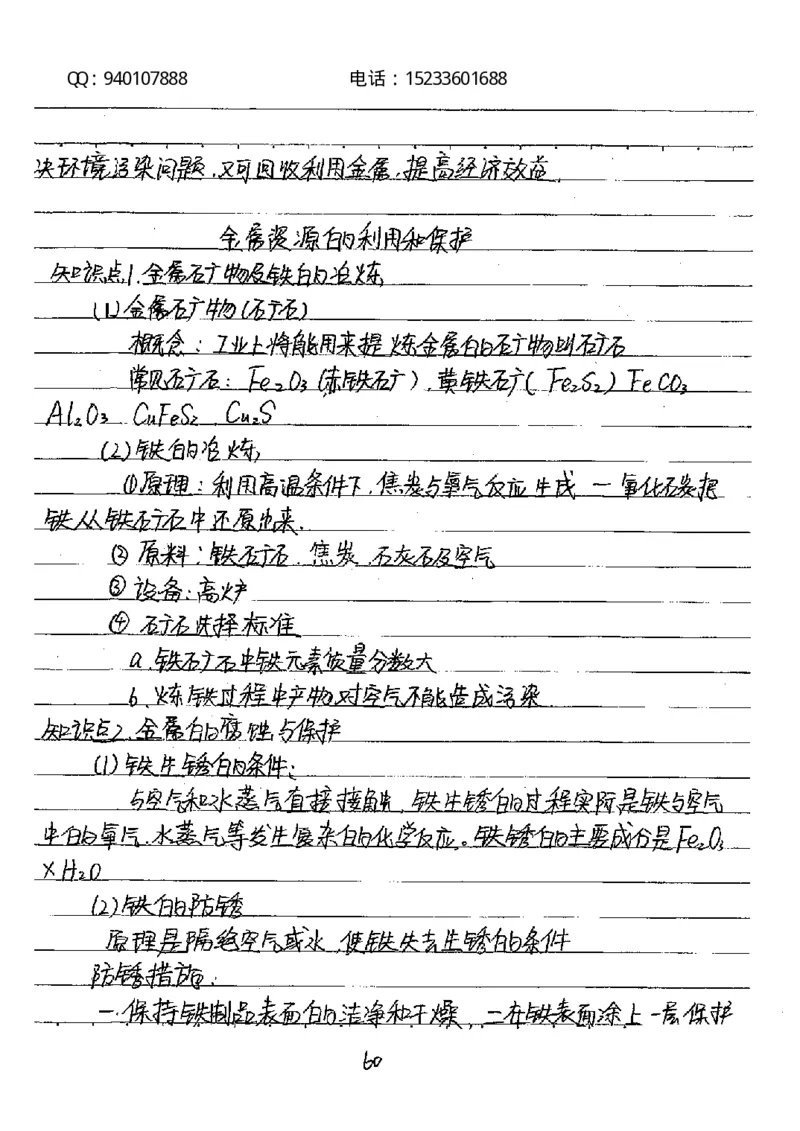 QQ：940107888 电话：15233601688
决环境污染问题，又可回收利用金属，提高经济效益。
金属资源的利用和保护
知识点1.金属矿物及铁的冶炼
(1)金属矿物(矿石)
概念：工业上将能用来提炼金属的矿物叫矿石
常见矿石：Fe₂O₃(赤铁矿)，黄铁矿(Fe₂S₂) FeCO₃
Al₂O₃ CuFeS₂ Cu₂S
(2)铁的冶炼
①原理：利用高温条件下，焦炭与氧气反应生成一氧化碳把
铁从铁矿石中还原出来.
②原料：铁矿石.焦炭.石灰石及空气
③设备：高炉
④矿石选择标准
a.铁矿石中铁元素质量分数大
b.炼铁过程中产物对空气不能造成污染
知识点2.金属的腐蚀与保护
(1)铁生锈的条件：
与空气和水蒸气直接接触，铁生锈的过程实际是铁与空气
中的氧气.水蒸气等发生复杂的化学反应。铁锈的主要成份是Fe₂O₃
×H₂O
(2)铁的防锈
原理是隔绝空气或水，使铁失去生锈的条件
防锈措施：
一.保持铁制品表面的洁净和干燥，二在铁表面涂上一层保护
60